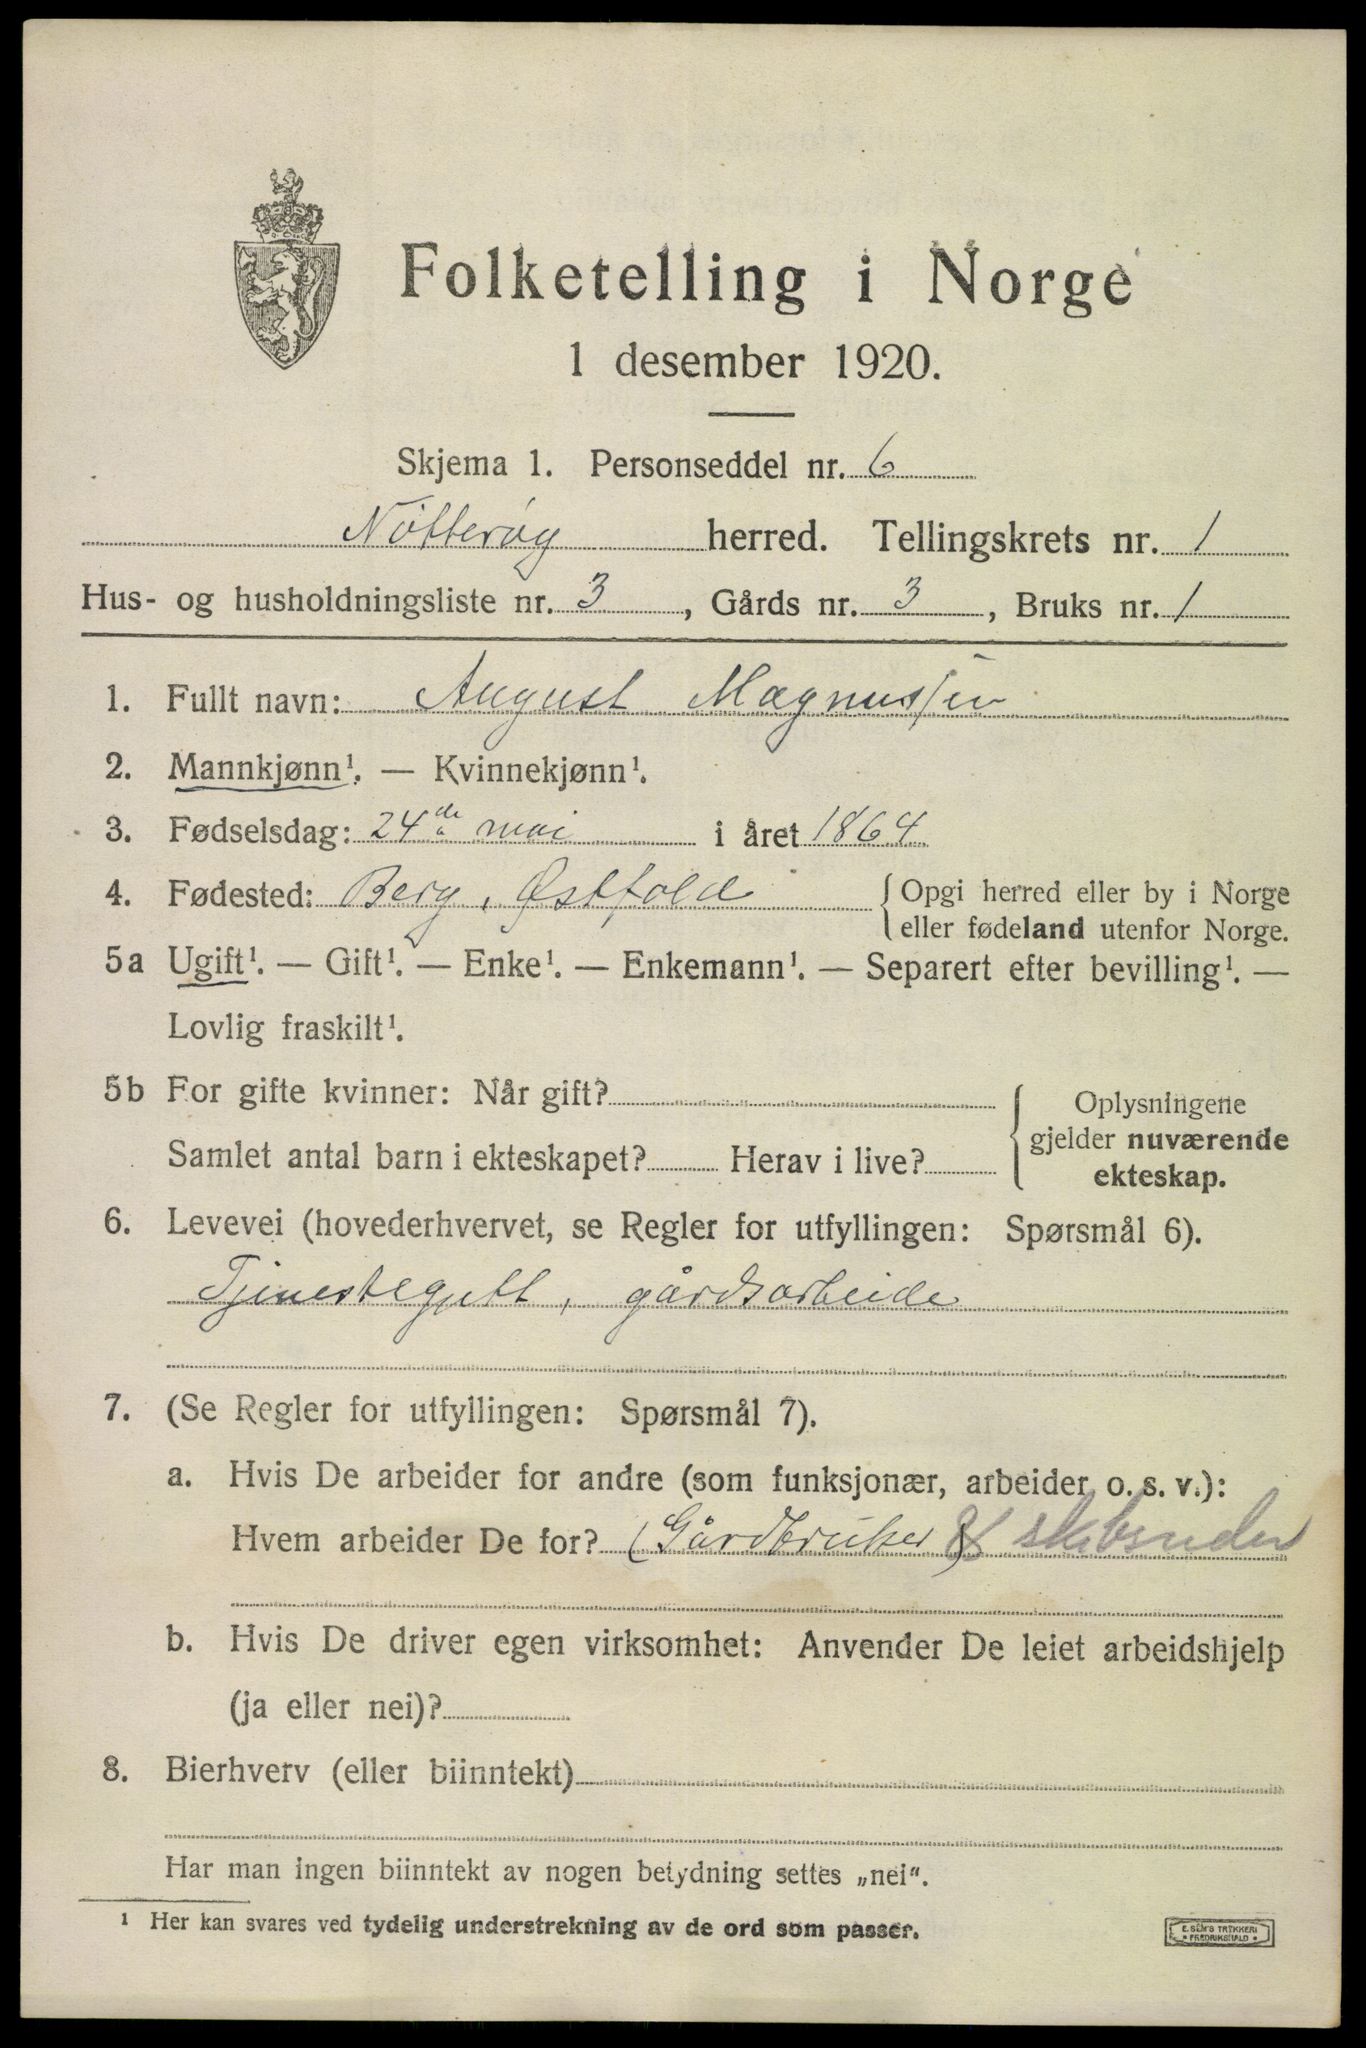 Folketelling i Norge
1 desember 1920.
Skjema 1. Personseddel nr. 6
Nötterøy herred. Tellingskrets nr. 1
Hus- og husholdningsliste nr. 3, Gårds nr. 3, Bruks nr. 1
1. Fullt navn: August Magnussen
2. Mannkjønn¹. — Kvinnekjønn¹.
3. Fødselsdag: 24de mai i året 1864
4. Fødested: Berg, Østfold { Opgi herred eller by i Norge
eller fødeland utenfor Norge.
5a Ugift¹. — Gift¹. — Enke¹. — Enkemann¹. — Separert efter bevilling¹. —
Lovlig fraskilt¹.
5b For gifte kvinner: Når gift?
Samlet antal barn i ekteskapet? Herav i live?
Oplysningene
gjelder nuværende
ekteskap.
6. Levevei (hovederhvervet, se Regler for utfyllingen: Spørsmål 6).
Tjenestegutt, gårdsarbeide
7. (Se Regler for utfyllingen: Spørsmål 7).
a. Hvis De arbeider for andre (som funksjonær, arbeider o. s. v.):
Hvem arbeider De for? (Gårdbruker) & skibsreder
b. Hvis De driver egen virksomhet: Anvender De leiet arbeidshjelp
(ja eller nei)?
8. Bierhverv (eller biinntekt)
Har man ingen biinntekt av nogen betydning settes „nei".
¹ Her kan svares ved tydelig understrekning av de ord som passer.
E. SEM'S TRYKKERI
FREDRIKSHALD